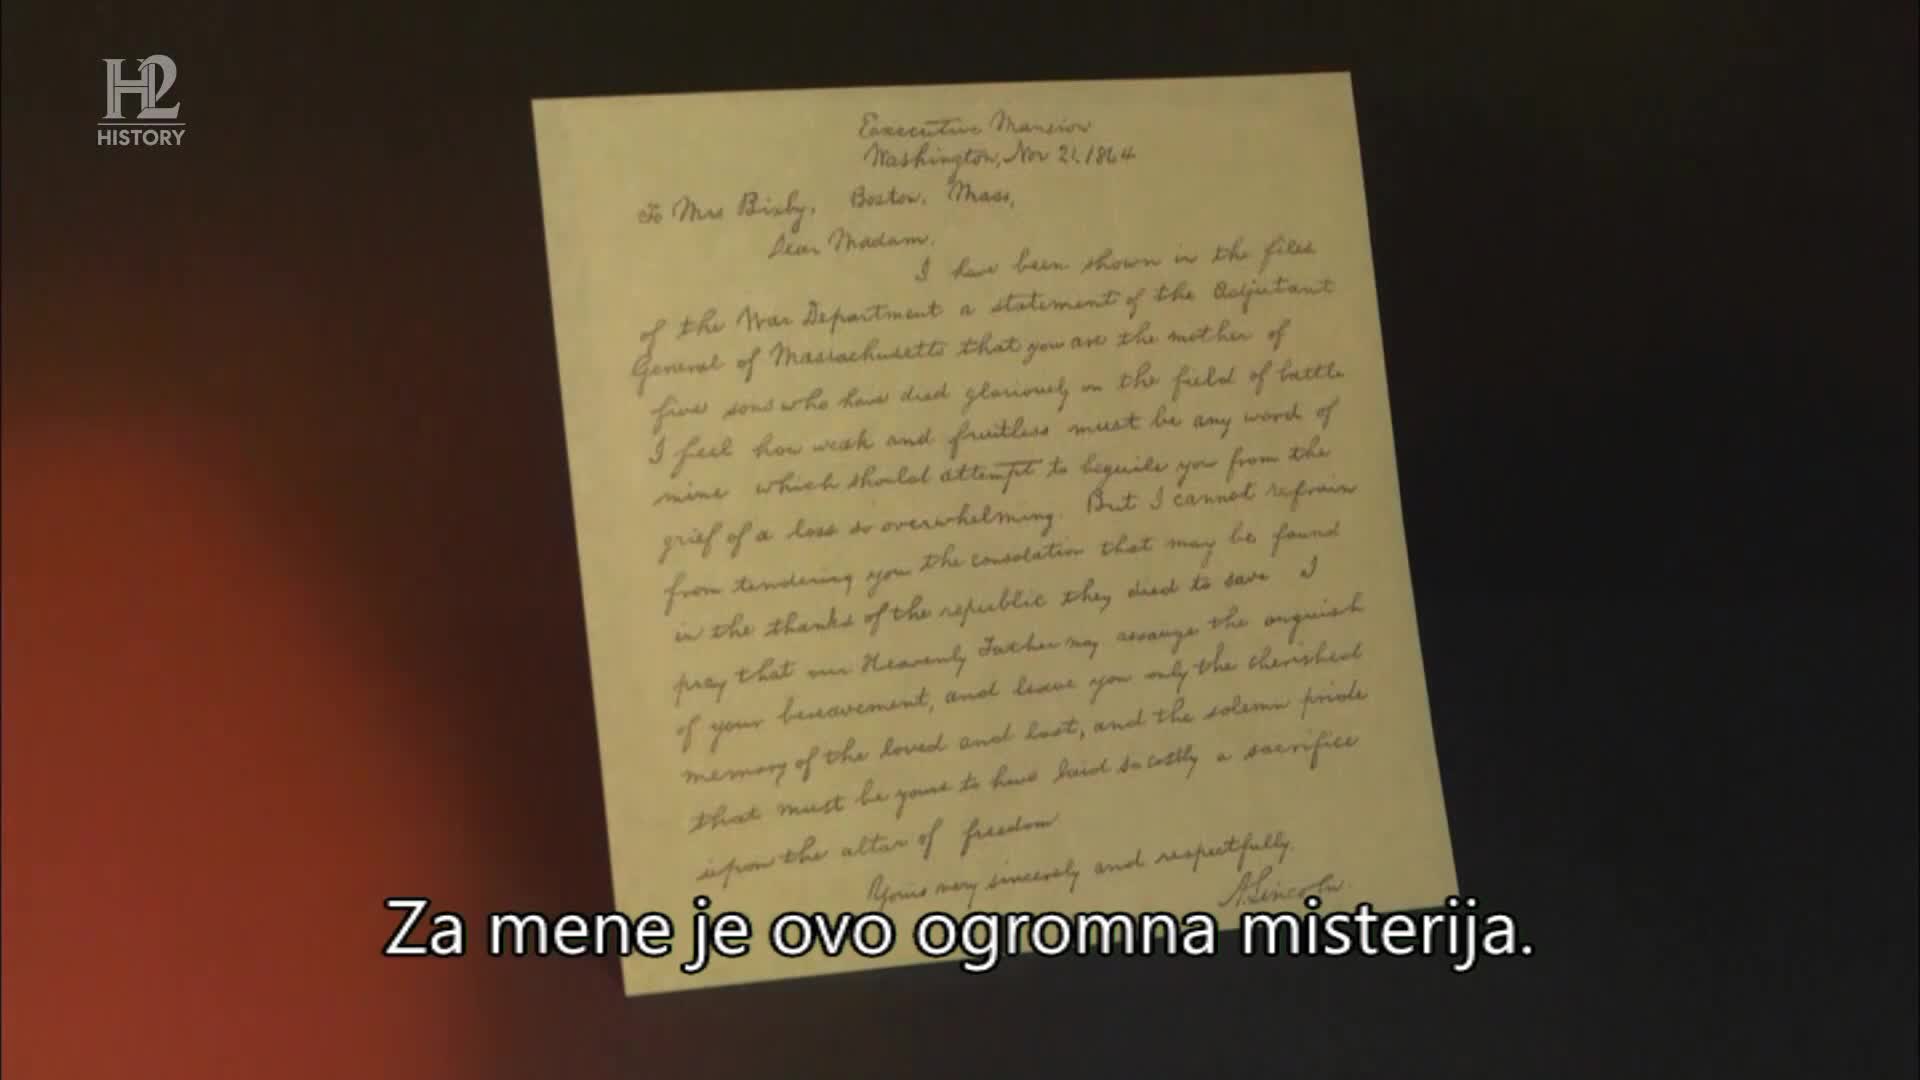 H2
HISTORY
Executive Mansion
Washington, Nov 21, 1864
To Mrs Bixby, Boston, Mass,
Dear Madam,
I have been shown in the files
of the War Department a statement of the Adjutant
General of Massachusetts that you are the mother of
five sons who have died gloriously on the field of battle
I feel how weak and fruitless must be any word of
mine which should attempt to beguile you from the
grief of a loss so overwhelming. But I cannot refrain
from tendering you the consolation that may be found
in the thanks of the republic they died to save I
pray that our Heavenly Father may assauge the anguish
of your bereavement, and leave you only the cherished
memory of the loved and lost, and the solemn pride
that must be yours to have laid so costly a sacrifice
upon the altar of freedom
Yours very sincerely and respectfully.
A. Lincoln.
Za mene je ovo ogromna misterija.